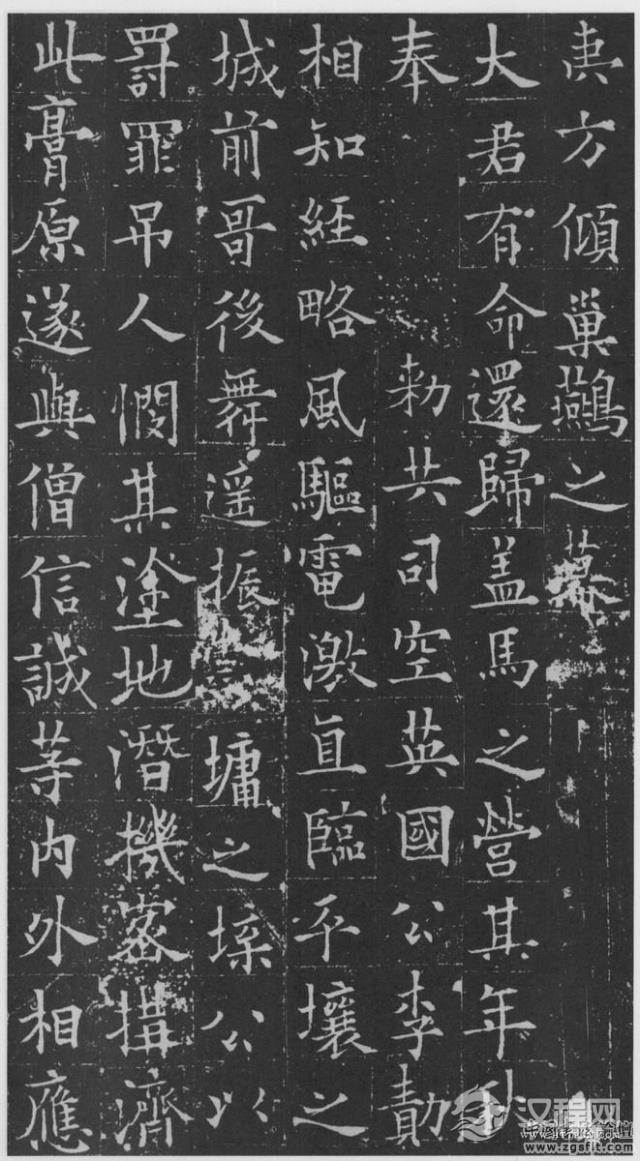 夷方傾巢鷰之幕
大君有命還歸盖馬之營其年秋
奉 勑共司空英國公李勣
相知經略風驅電激直臨平壤之
城前哥後舞遥振墉之堞公以
罰罪吊人憫其塗地潛機密搆濟
此膏原遂與僧信誠等内外相應
汉程网
www.zgsfit.com